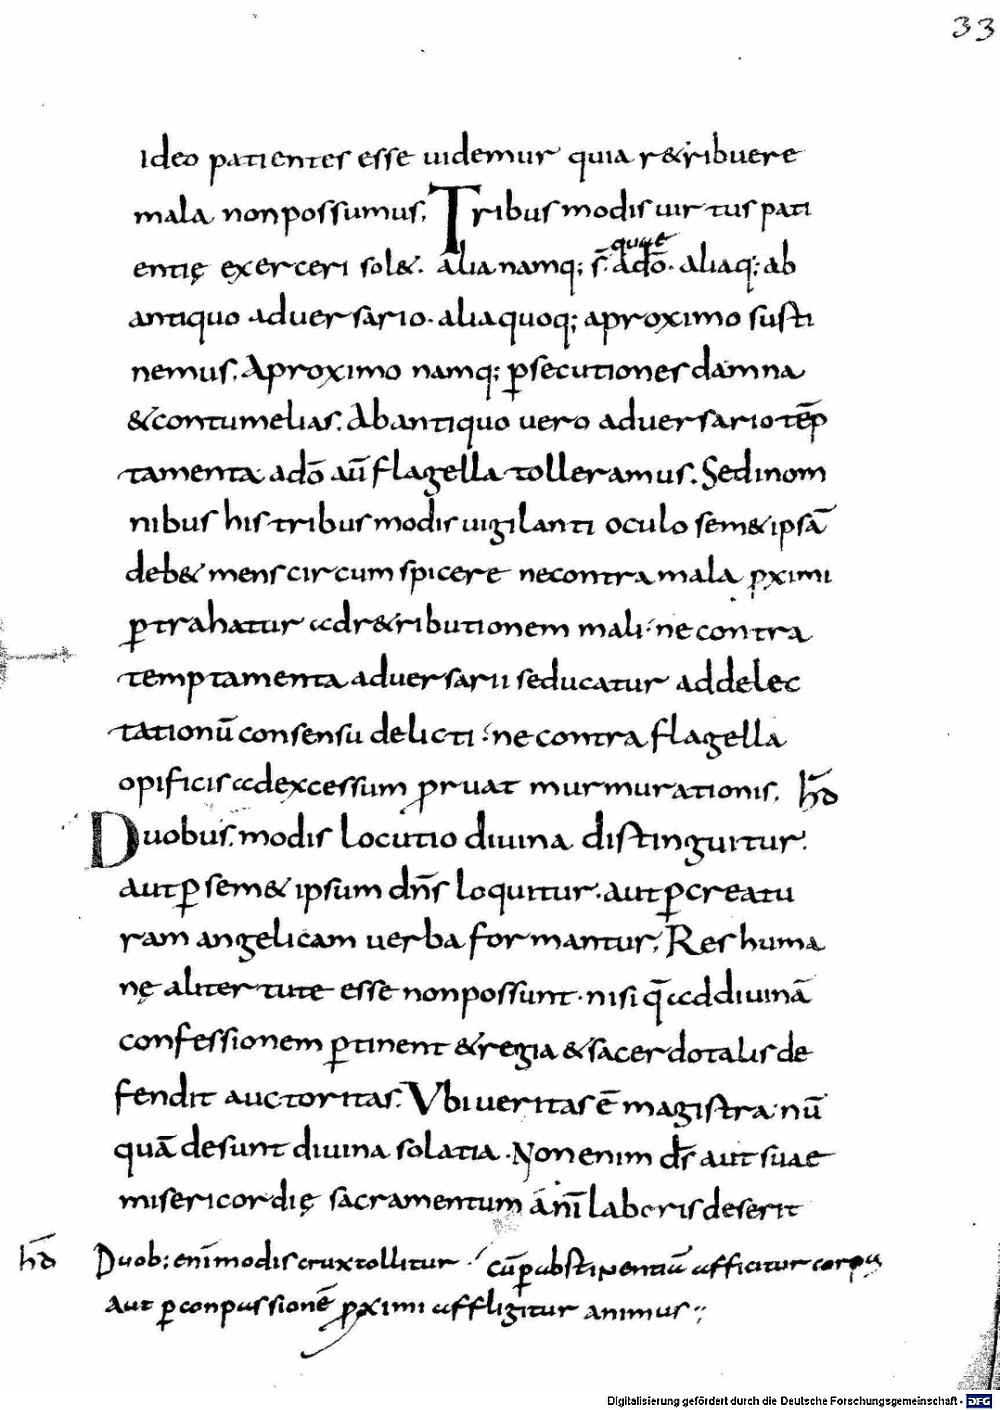 33
ideo patientes esse uidemur quia r&ribuere
mala nonpossumus. Tribus modis uirtus pati
entię exerceri sol&. alia namq; s̄. quae adō. aliaq; ab
antiquo aduersario. aliaquoq; aproximo susti
nemus. Aproximo namq; ꝑsecutiones damna
&contumelias. Abantiquo uero aduersario tēp
tamenta. adō aū flagella tolleramus. Sedinom
nibus his tribus modis uigilanti oculo sem&ipsā
deb& mens circumspicere necontra mala ꝓximi
ꝑtrahatur adr&ributionem mali. ne contra
temptamenta aduersarii seducatur addelec
tationū consensu delicti. ne contra flagella
opificis adexcessum ꝓruat murmurationis. hō
Duobus. modis locutio diuina distinguitur.
aut ꝑ sem& ipsum dn̄s loquitur. aut ꝑ creatu
ram angelicam uerba formantur. Res huma
nę aliter tute esse nonpossunt. nisi q̄ addiuinā
confessionem ꝑtinent &regia &sacerdotalis de
fendit auctoritas. Vbi ueritas ē magistra. nū
quā desunt diuina solatia. Non enim ds̄ aut suae
misericordię sacramentum aut n̄i laboris deserit
hō Duob; enī modis crux tollitur. cū ꝑ abstinentiā afficitur corpus
Aut ꝑ conpassionē ꝓximi affligitur animus;
Digitalisierung gefördert durch die Deutsche Forschungsgemeinschaft - DFG